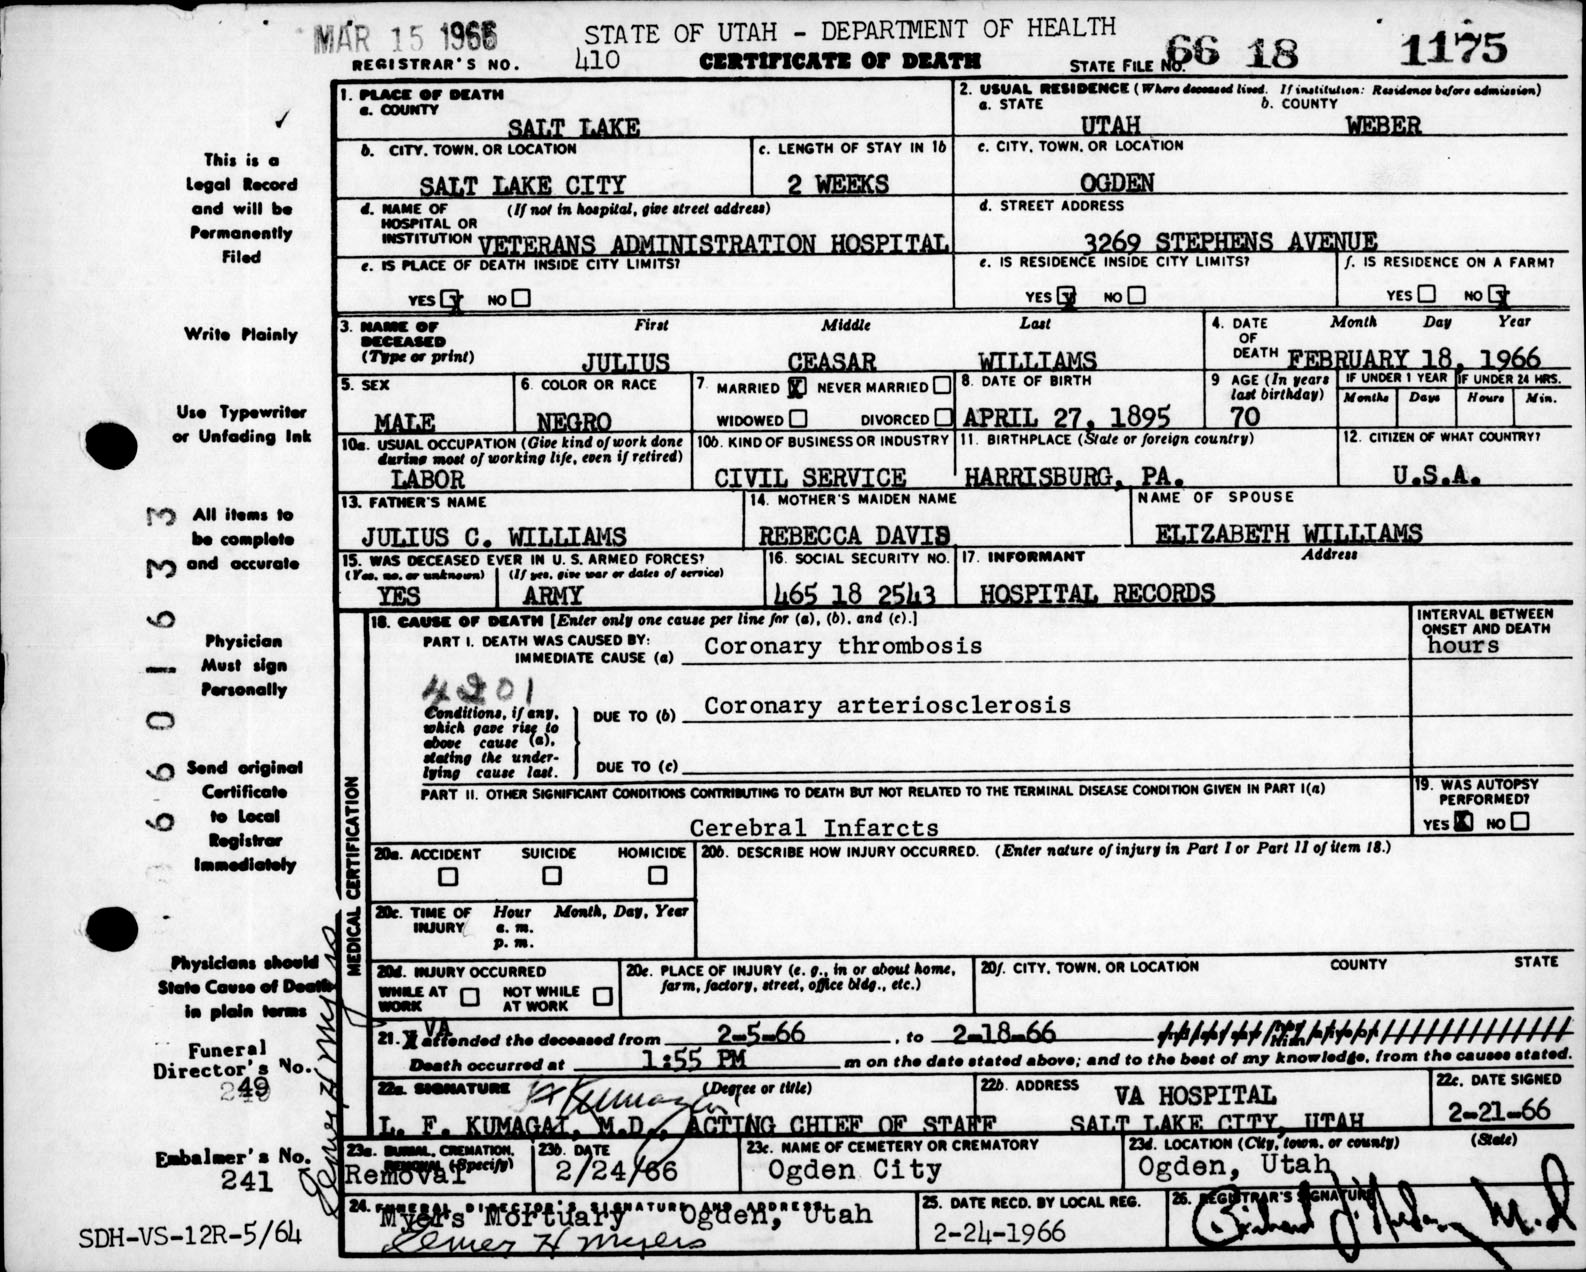 MAR 15 1966
STATE OF UTAH - DEPARTMENT OF HEALTH
REGISTRAR'S NO. 410
CERTIFICATE OF DEATH
STATE FILE NO. 66 18 1175
This is a
Legal Record
and will be
Permanently
Filed
Write Plainly
Use Typewriter
or Unfading Ink
All items to
be complete
and accurate
Physician
Must sign
Personally
Send original
Certificate
to Local
Registrar
Immediately
Physicians should
State Cause of Death
in plain terms
Funeral
Director's No.
49
Embalmer's No.
241
Elmer H Myers
SDH-VS-12R-5/64
1. PLACE OF DEATH
a. COUNTY
SALT LAKE
2. USUAL RESIDENCE (Where deceased lived. If institution: Residence before admission)
a. STATE b. COUNTY
UTAH WEBER
b. CITY, TOWN, OR LOCATION
SALT LAKE CITY
c. LENGTH OF STAY IN 1b
2 WEEKS
c. CITY, TOWN, OR LOCATION
OGDEN
d. NAME OF (If not in hospital, give street address)
HOSPITAL OR
INSTITUTION VETERANS ADMINISTRATION HOSPITAL
d. STREET ADDRESS
3269 STEPHENS AVENUE
e. IS PLACE OF DEATH INSIDE CITY LIMITS?
YES X NO
e. IS RESIDENCE INSIDE CITY LIMITS?
YES X NO
f. IS RESIDENCE ON A FARM?
YES NO X
3. NAME OF DECEASED (Type or print)
First Middle Last
JULIUS CEASAR WILLIAMS
4. DATE OF DEATH Month Day Year
FEBRUARY 18, 1966
5. SEX
MALE
6. COLOR OR RACE
NEGRO
7. MARRIED X NEVER MARRIED
WIDOWED DIVORCED
8. DATE OF BIRTH
APRIL 27, 1895
9 AGE (In years last birthday)
70
IF UNDER 1 YEAR IF UNDER 24 HRS.
Months Days Hours Min.
10a. USUAL OCCUPATION (Give kind of work done
during most of working life, even if retired)
LABOR
10b. KIND OF BUSINESS OR INDUSTRY
CIVIL SERVICE
11. BIRTHPLACE (State or foreign country)
HARRISBURG, PA.
12. CITIZEN OF WHAT COUNTRY?
U.S.A.
13. FATHER'S NAME
JULIUS C. WILLIAMS
14. MOTHER'S MAIDEN NAME
REBECCA DAVIS
NAME OF SPOUSE
ELIZABETH WILLIAMS
15. WAS DECEASED EVER IN U. S. ARMED FORCES?
(Yes, no, or unknown) (If yes, give war or dates of service)
YES ARMY
16. SOCIAL SECURITY NO.
465 18 2543
17. INFORMANT Address
HOSPITAL RECORDS
MEDICAL CERTIFICATION
18. CAUSE OF DEATH [Enter only one cause per line for (a), (b), and (c).]
INTERVAL BETWEEN
ONSET AND DEATH
PART I. DEATH WAS CAUSED BY:
IMMEDIATE CAUSE (a) Coronary thrombosis
hours
4201
Conditions, if any,
which gave rise to
above cause (a),
stating the under-
lying cause last.
DUE TO (b) Coronary arteriosclerosis
DUE TO (c)
PART II. OTHER SIGNIFICANT CONDITIONS CONTRIBUTING TO DEATH BUT NOT RELATED TO THE TERMINAL DISEASE CONDITION GIVEN IN PART I(a)
Cerebral Infarcts
19. WAS AUTOPSY
PERFORMED?
YES X NO
20a. ACCIDENT SUICIDE HOMICIDE
20b. DESCRIBE HOW INJURY OCCURRED. (Enter nature of injury in Part I or Part II of item 18.)
20c. TIME OF INJURY Hour Month, Day, Year
a. m.
p. m.
20d. INJURY OCCURRED
WHILE AT WORK NOT WHILE AT WORK
20e. PLACE OF INJURY (e. g., in or about home,
farm, factory, street, office bldg., etc.)
20f. CITY, TOWN, OR LOCATION COUNTY STATE
21. VA attended the deceased from 2-5-66, to 2-18-66
Death occurred at 1:55 PM m on the date stated above; and to the best of my knowledge, from the causes stated.
22a. SIGNATURE (Degree or title)
L. F. KUMAGAI, M.D., ACTING CHIEF OF STAFF
22b. ADDRESS VA HOSPITAL
SALT LAKE CITY, UTAH
22c. DATE SIGNED
2-21-66
23a. BURIAL, CREMATION,
REMOVAL (Specify)
Removal
23b. DATE
2/24/66
23c. NAME OF CEMETERY OR CREMATORY
Ogden City
23d. LOCATION (City, town, or county) (State)
Ogden, Utah
24. FUNERAL DIRECTOR'S SIGNATURE AND ADDRESS
Myers Mortuary Ogden, Utah
Elmer H Myers
25. DATE RECD. BY LOCAL REG.
2-24-1966
26. REGISTRAR'S SIGNATURE